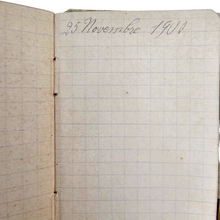 25 Novembre 1900